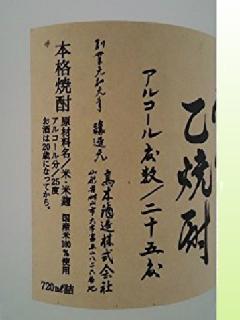 乙焼酎
アルコール度数/二十五度
醸造元
高木酒造株式会社
本格焼酎
原材料名/米・米麹 国産米100%使用
アルコール分/25度
お酒は20歳になってから。
720ml詰